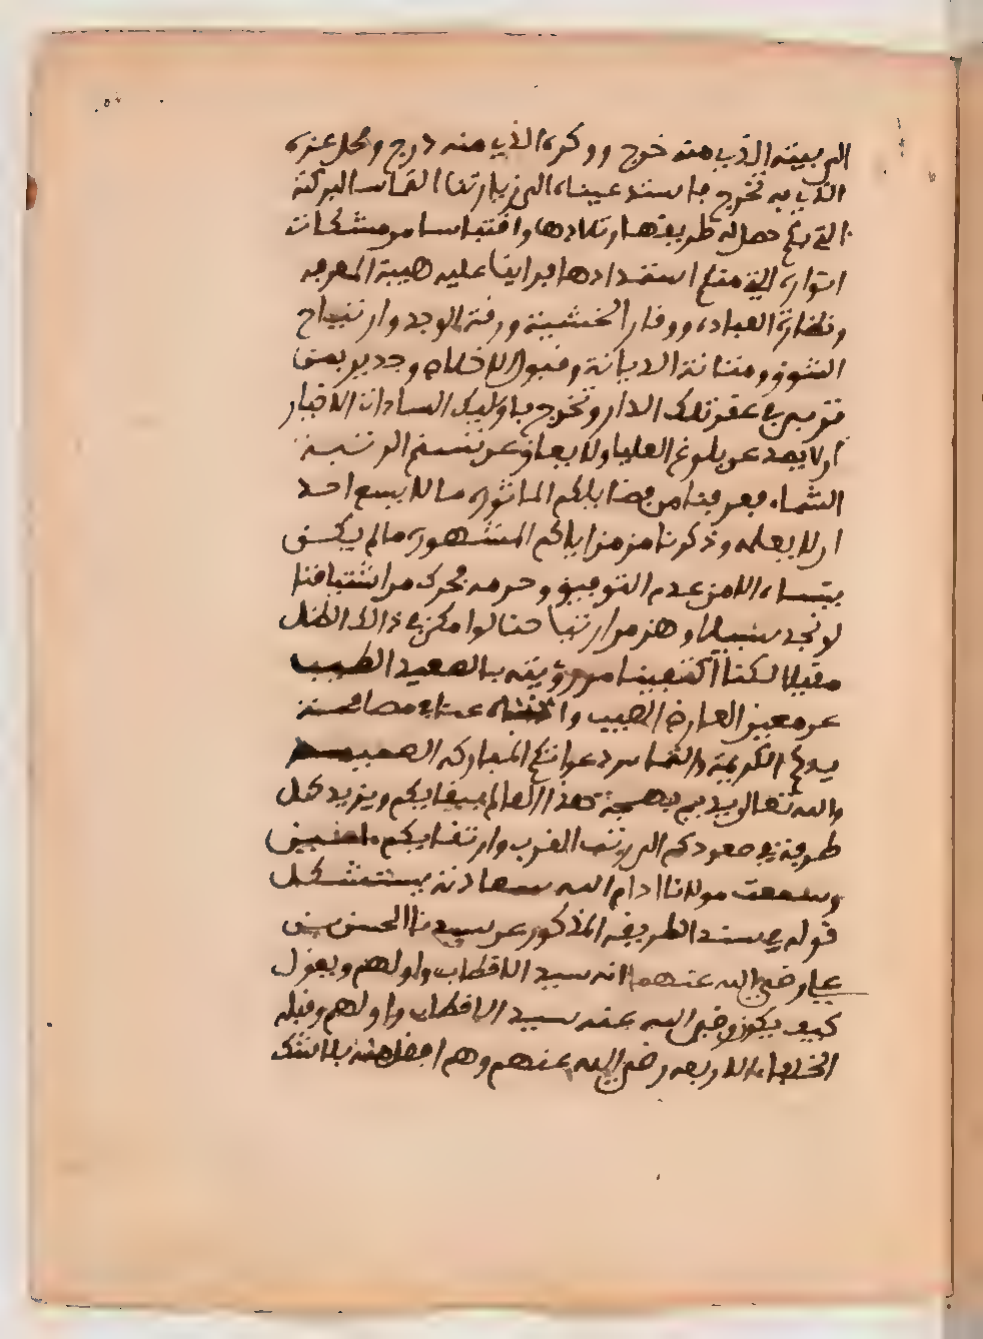 الى بيته الذي منه خرج ووكره الذي منه درج ومحل عزه
الذي به تخرج ما سند عيناه الى زيارتنا التماسا لبركة
التي حصل له طريقها وتلادها واقتباسا من مشكات
انواره التي منع استمدادها فراينا عليه هيبة المعرفة
ونضارة العبادة ووقار الخشية ورقة الوجد وارتياح
الشوق ومتانة الديانة وقبول الاخلاص وجدير بمن
تربى في عقر تلك الدار وتخرج باوليك السادات الاخيار
ان لا يبعد عن بلوغ العليا ولا يعاق عن تسنم الرتبة
الشماء فعرفنا من فضايلكم الماثورة ما لا يسع احد
ان لا يعلمه وذكرنا من مزاياكم المشهورة ما لم يكن
يتساه الا من عدم التوفيق وحرمه فحرك من اشتياقنا
لو نجد سبيلا وهز من ارتياحنا لو امكن في ذالك الظل
مقيلا لكنا اكتفينا من رؤيته بالصعيد الطيب
عن معين العارض الصيب و عناه مصافحة
يدكم الكريمة والتماس دعواتكم المباركة العميمـ
والله تعالى يديم بهجة هذا العالم ببقايكم ويزيد كل
طرفة في صعودكم الى رتب القرب وارتقايكم امين
وسمعت مولانا ادام الله سعادته يستشكل
قوله في سند الطريقه المذكور عن سيدنا الحسن بن
علي رضي الله عنهما انه سيد الاقطاب واولهم ويقول
كيف يكون رضي الله عنه سيد الاقطاب واولهم وقبله
الخلفاء الاربعه رضي الله عنهم وهم افضل منه بلا شك